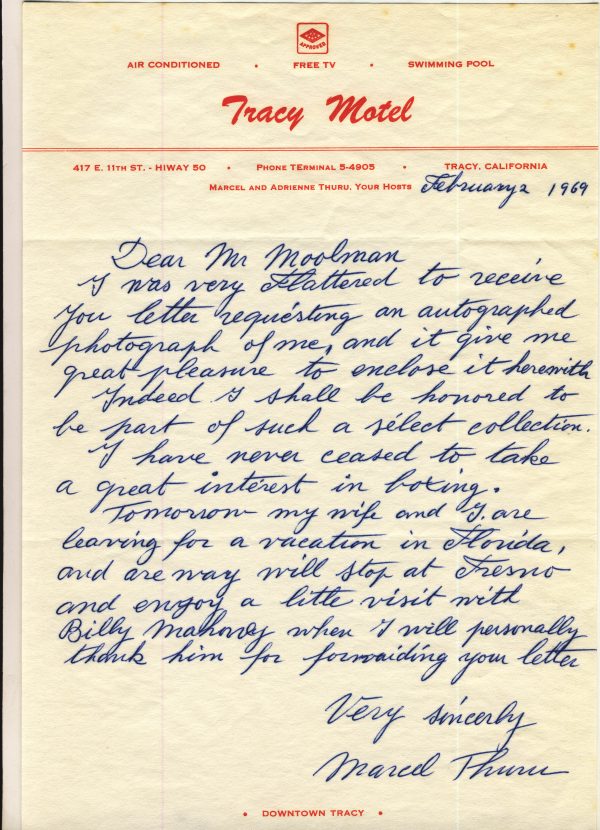 APPROVED
AIR CONDITIONED • FREE TV • SWIMMING POOL
Tracy Motel
417 E. 11TH ST. - HIWAY 50 • PHONE TERMINAL 5-4905 • TRACY, CALIFORNIA
MARCEL AND ADRIENNE THURU, YOUR HOSTS
February 2 1969
Dear Mr Moolman
I was very Flattered to receive
You letter requésting an autographed
photograph of me, and it give me
great pleasure to enclose it herewith
Indeed I shall be honored to
be part of such a sélect collection.
I have never ceased to take
a great interest in boxing.
Tomorrow my wife and I. are
leaving for a vacation in Florida,
and are way will stop at Fresno
and enjoy a little visit with
Billy Mahoney when I will personally
thank him for forwaiding your letter
Very sincerly
Marcel Thuru
• DOWNTOWN TRACY •